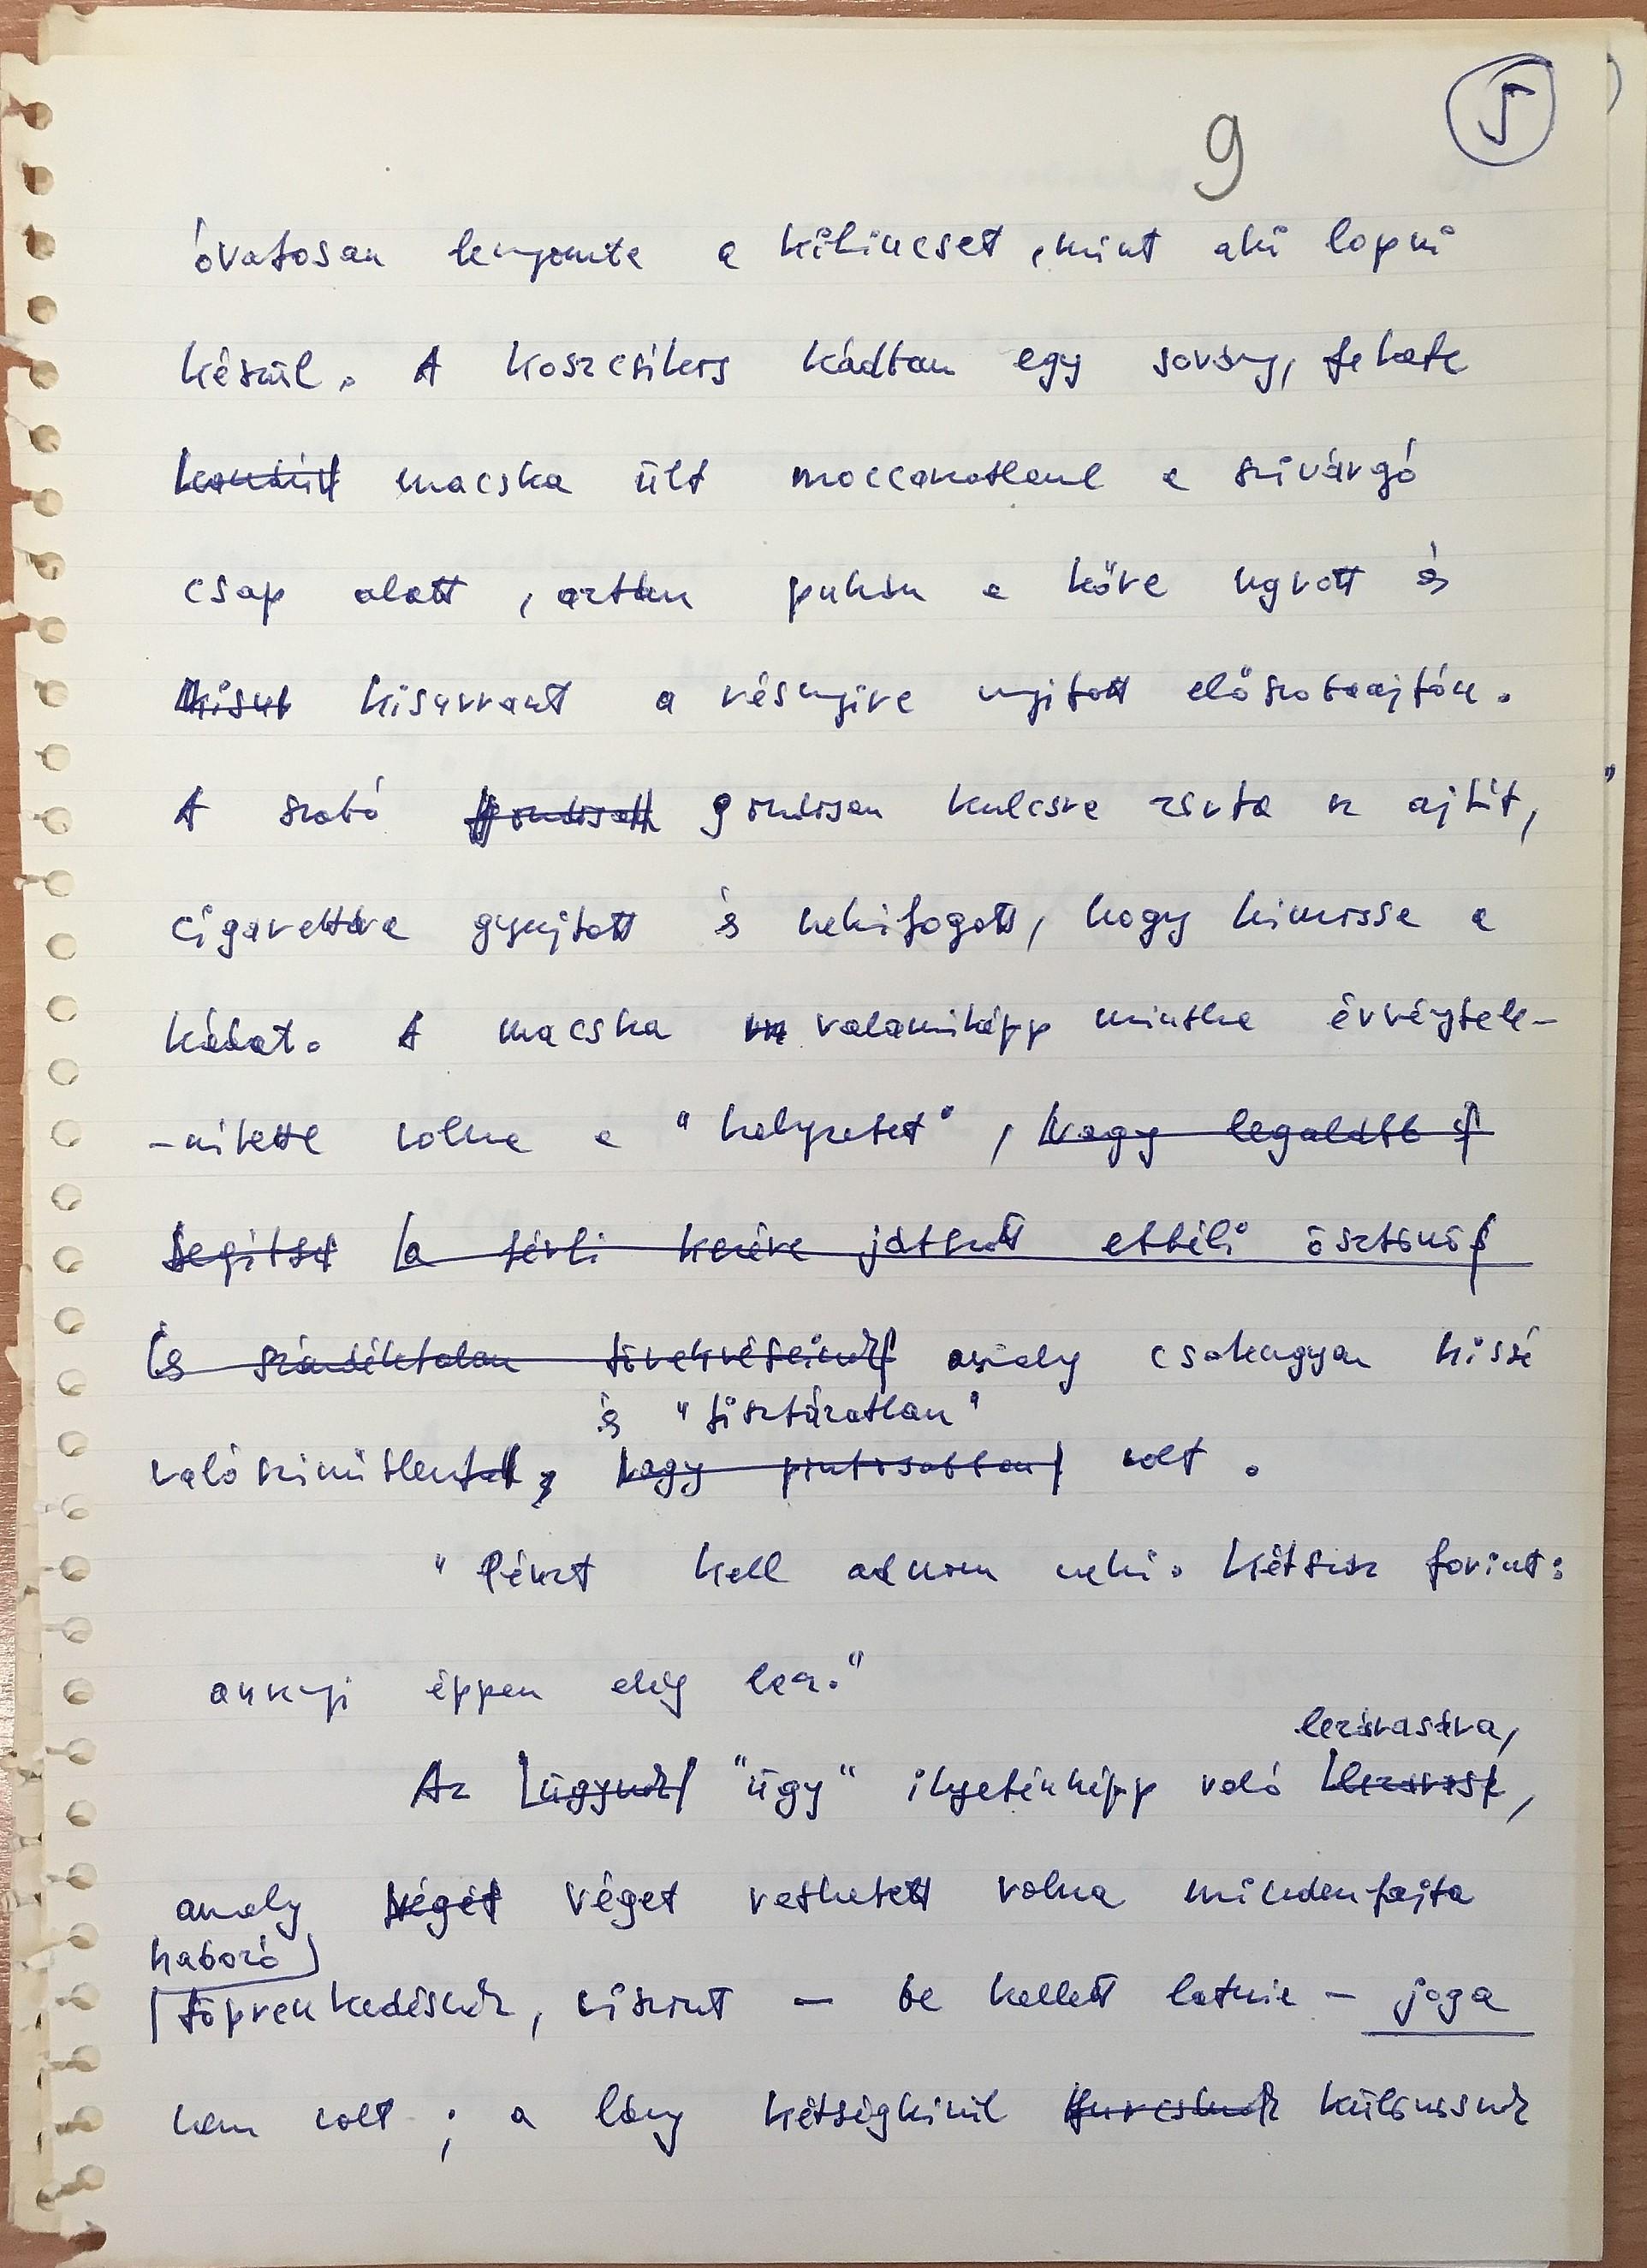 5
9
óvatosan lenyomta a kilincset, mint aki lopni
készül. A koszcsíkos kádban egy sovány, fekete
macska ült moccanatlanul a szivárgó
csap alatt, aztán puhán a kőre ugrott és
kisut kisurrant a résnyire nyitott előszobaajtón.
A szabó gondosan kulcsra zárta az ajtót,
cigarettára gyujtott és nekifogott, hogy kimossa a
kádat. A macska valamiképp mintha érvénytele-
-nitette volna a "helyzetet", vagy legalább
segitség a férfi kezére játszott ebbéli ösztönös
és szándéktalan törekvéseinek amely csakugyan kissé
és "tisztázatlan"
valószinütlen, vagy pontosabban volt.
"Pénzt kell adnom neki. Kétszáz forint:
annyi éppen elég lesz."
lezárására,
Az ügynek "ügy" ilyeténképp való lezárása,
amely végét véget vethetett volna mindenfajta
habozó
töprenkedésnek, viszont – be kellett látnia – joga
nem volt; a lány kétségkivül furcsának különösnek